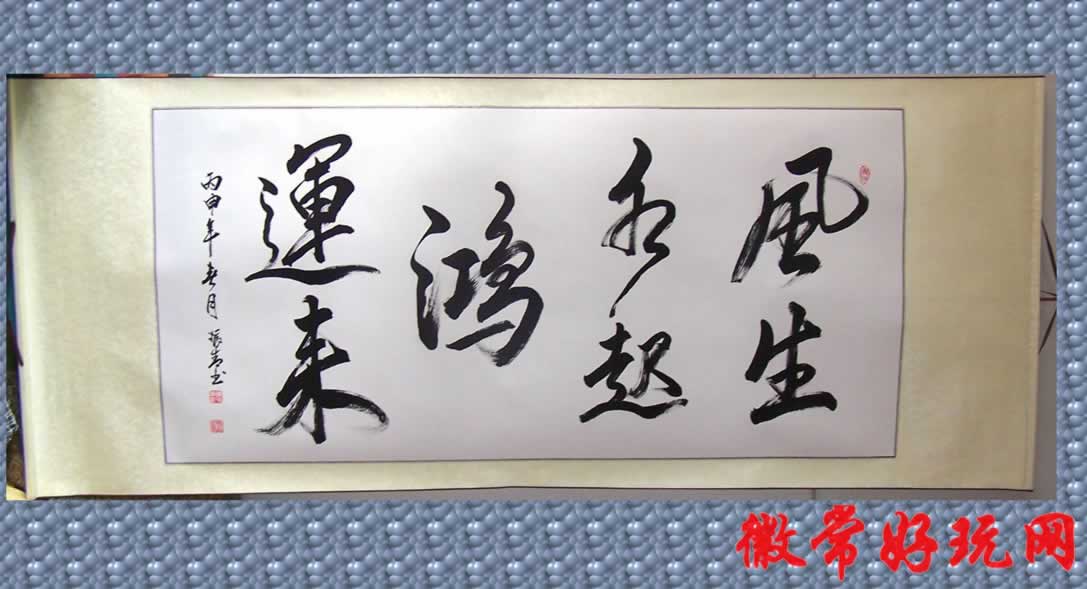 風生
水起
鸿
運来
丙申年春月
书
徽常好玩网